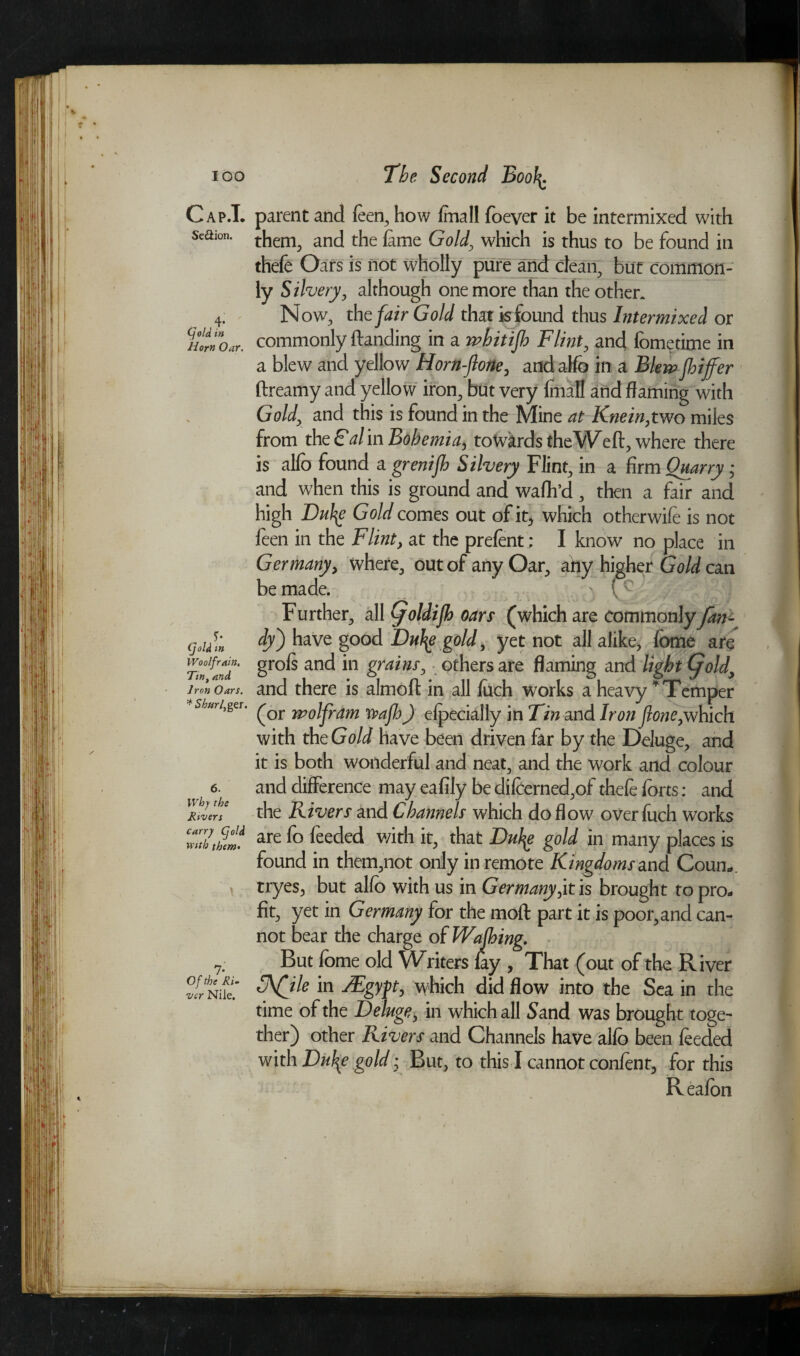 100 The Second Book.
Cap.I.
Section.
parent and ſeen, how ſmall ſoever it be intermixed with
them, and the ſame Gold, which is thus to be found in
theſe Oars is not wholly pure and clean, but common-
ly Silvery, although one more than the other.
4.
Gold in
Horn Oar.
Now, the fair Gold that is found thus Intermixed or
commonly ſtanding in a whitiſh Flint, and ſometime in
a blew and yellow Horn-ſtone, and alſo in a Blew ſhiffer
ſtreamy and yellow iron, but very ſmall and flaming with
Gold, and this is found in the Mine at Knein, two miles
from the Eal in Bohemia, towards the Weſt, where there
is alſo found a greniſh Silvery Flint, in a firm Quarry;
and when this is ground and waſh'd, then a fair and
high Duke Gold comes out of it, which otherwiſe is not
ſeen in the Flint, at the preſent: I know no place in
Germany, where, out of any Oar, any higher Gold can
be made.
5.
Gold in
Woolfrain.
Tin, and
Iron Oars.
* Shurl, ger.
Further, all Goldiſh oars (which are commonly ſan-
dy) have good Duke gold, yet not all alike, ſome are
groſs and in grains, others are flaming and light Gold,
and there is almoſt in all ſuch works a heavy * Temper
(or wolfram waſh) eſpecially in Tin and Iron ſtone, which
with the Gold have been driven far by the Deluge, and
it is both wonderful and neat, and the work and colour
and difference may eaſily be diſcerned, of theſe ſorts: and
6.
Why the
Rivers
carry Gold
with them.
the Rivers and Channels which do flow over ſuch works
are ſo ſeeded with it, that Duke gold in many places is
found in them, not only in remote Kingdoms and Coun-
tryes, but alſo with us in Germany, it is brought to pro-
fit, yet in Germany for the moſt part it is poor, and can-
not bear the charge of Waſhing.
7.
Of the Ri-
ver Nile.
But ſome old Writers ſay, That (out of the River
Nile in Ægypt, which did flow into the Sea in the
time of the Deluge, in which all Sand was brought toge-
ther) other Rivers and Channels have alſo been ſeeded
with Duke gold; But, to this I cannot conſent, for this
Reaſon